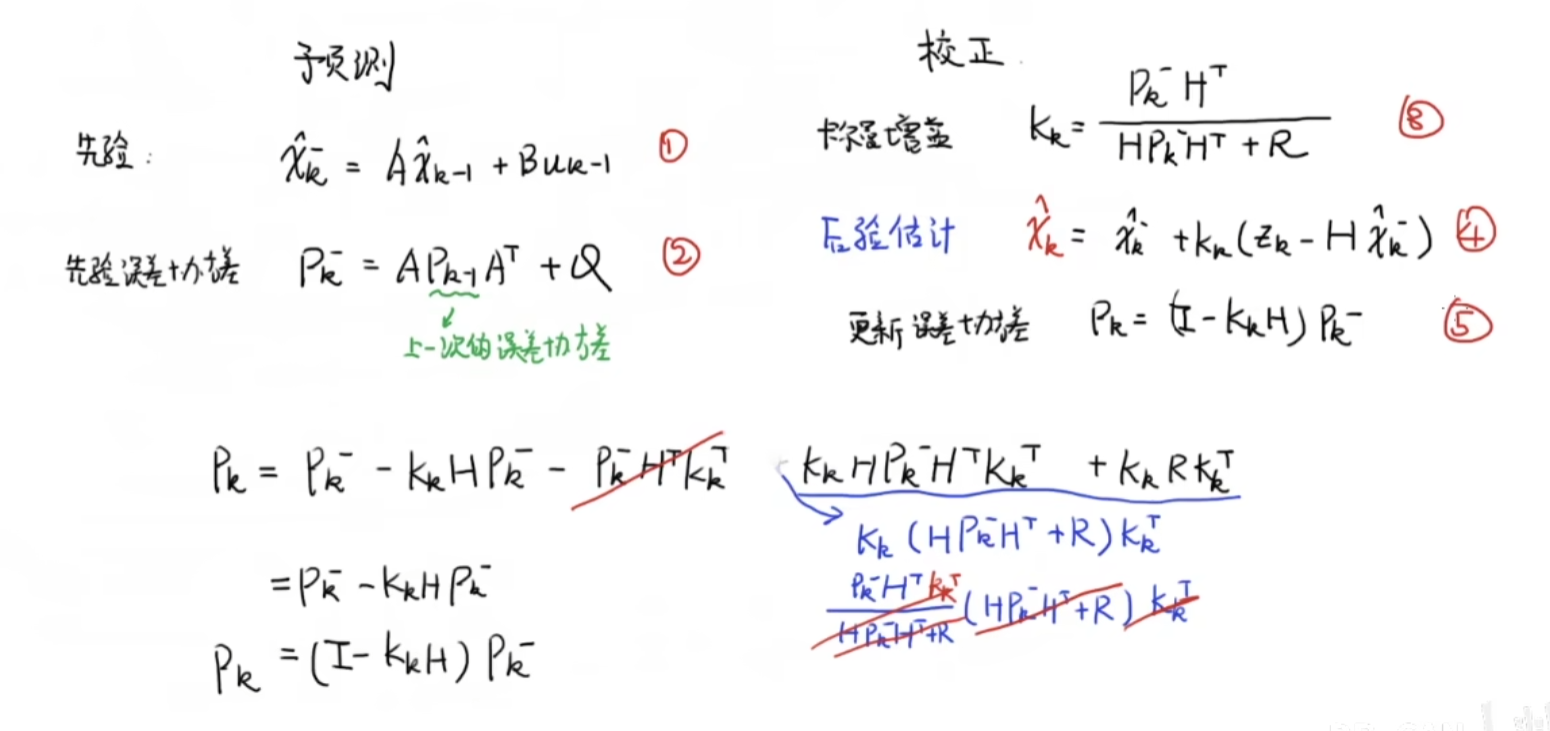 预测
先验：
x̂ₖ⁻ = Ax̂ₖ₋₁ + Buₖ₋₁ ①
先验误差协方差 Pₖ⁻ = APₖ₋₁Aᵀ + Q ②
上一次的误差协方差
校正
卡尔曼增益 Kₖ = Pₖ⁻Hᵀ / (HPₖ⁻Hᵀ + R) ③
后验估计 x̂ₖ = x̂ₖ⁻ + Kₖ(zₖ - Hx̂ₖ⁻) ④
更新误差协方差 Pₖ = (I - KₖH)Pₖ⁻ ⑤
Pₖ = Pₖ⁻ - KₖHPₖ⁻ - Pₖ⁻HᵀKₖᵀ KₖHPₖ⁻HᵀKₖᵀ + KₖRKₖᵀ
Kₖ(HPₖ⁻Hᵀ + R)Kₖᵀ
Pₖ⁻HᵀKₖᵀ / (HPₖ⁻Hᵀ+R) (HPₖ⁻Hᵀ+R) Kₖᵀ
= Pₖ⁻ - KₖHPₖ⁻
Pₖ = (I - KₖH)Pₖ⁻